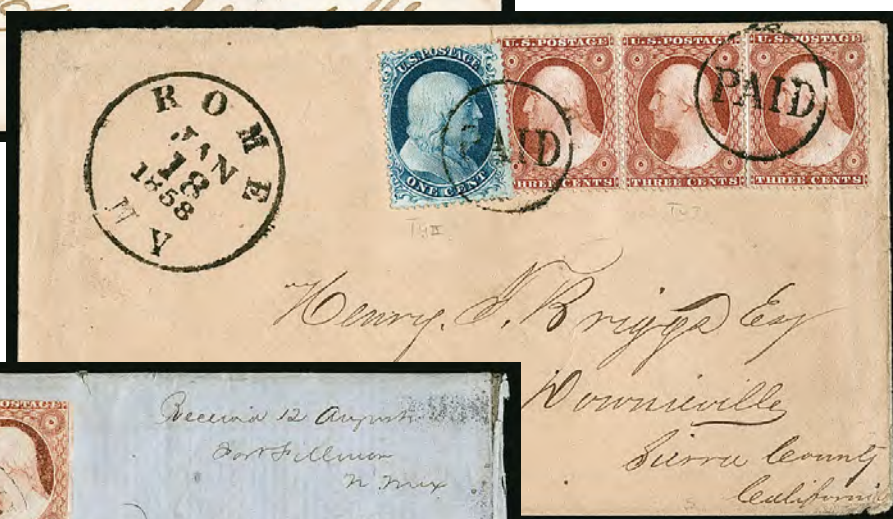 ROME
JAN
18
1858
N Y
U.S. POSTAGE
ONE CENT
PAID
U.S. POSTAGE
THREE CENTS
U.S. POSTAGE
THREE CENTS
PAID
U.S. POSTAGE
THREE CENTS
Henry. S. Briggs Esq
Downieville
Sierra County
California
POSTAGE
Received 12 August
Fort Fillmore
N Mex